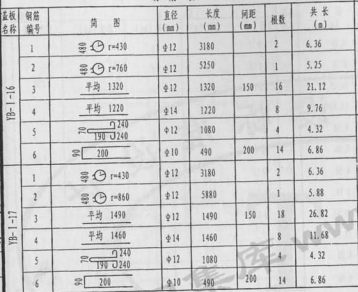 盖板名称 钢筋编号 简 图 直径(mm) 长度(mm) 间距(mm) 根数 共 长(m)
YB-1-16
1 480 r=430 Φ12 3180 2 6.36
2 480 r=760 Φ12 5250 1 5.25
3 平均 1320 Φ12 1320 150 16 21.12
4 平均 1220 Φ14 1220 8 9.76
5 70 240 190 240 Φ12 1080 4 4.32
6 90 200 Φ10 490 200 14 6.86
YB-1-17
1 480 r=430 Φ12 3180 2 6.36
2 480 r=860 Φ12 5880 1 5.88
3 平均 1490 Φ12 1490 150 18 26.82
4 平均 1460 Φ14 1460 8 11.68
5 70 240 190 240 Φ12 1080 4 4.32
6 90 200 Φ10 490 200 14 6.86